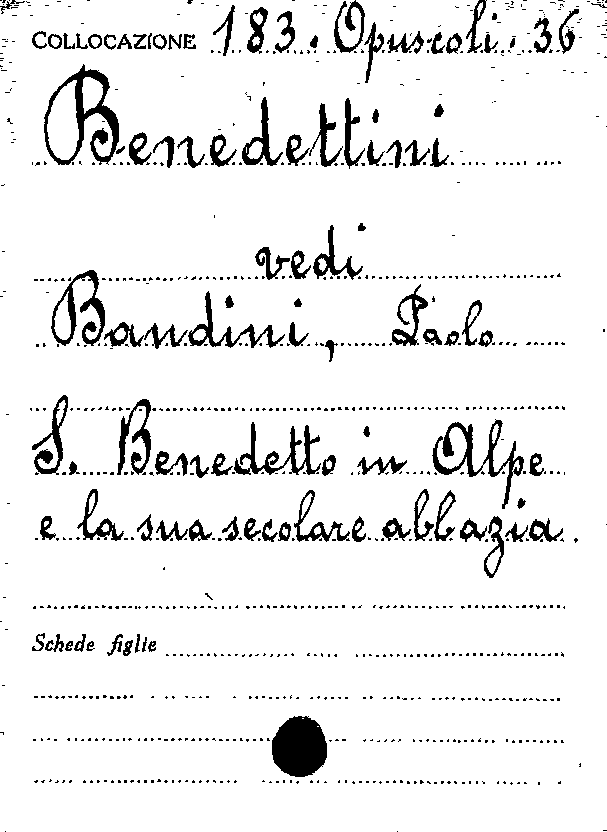 COLLOCAZIONE 183. Opuscoli. 36
Benedettini
vedi
Bandini, Paolo
S. Benedetto in Alpe
e la sua secolare abbazia.
Schede figlie